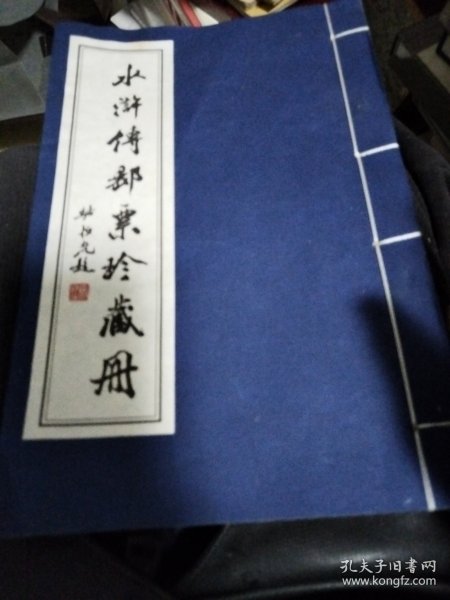 水浒传邮票珍藏册
孔夫子旧书网
www.kongfz.com